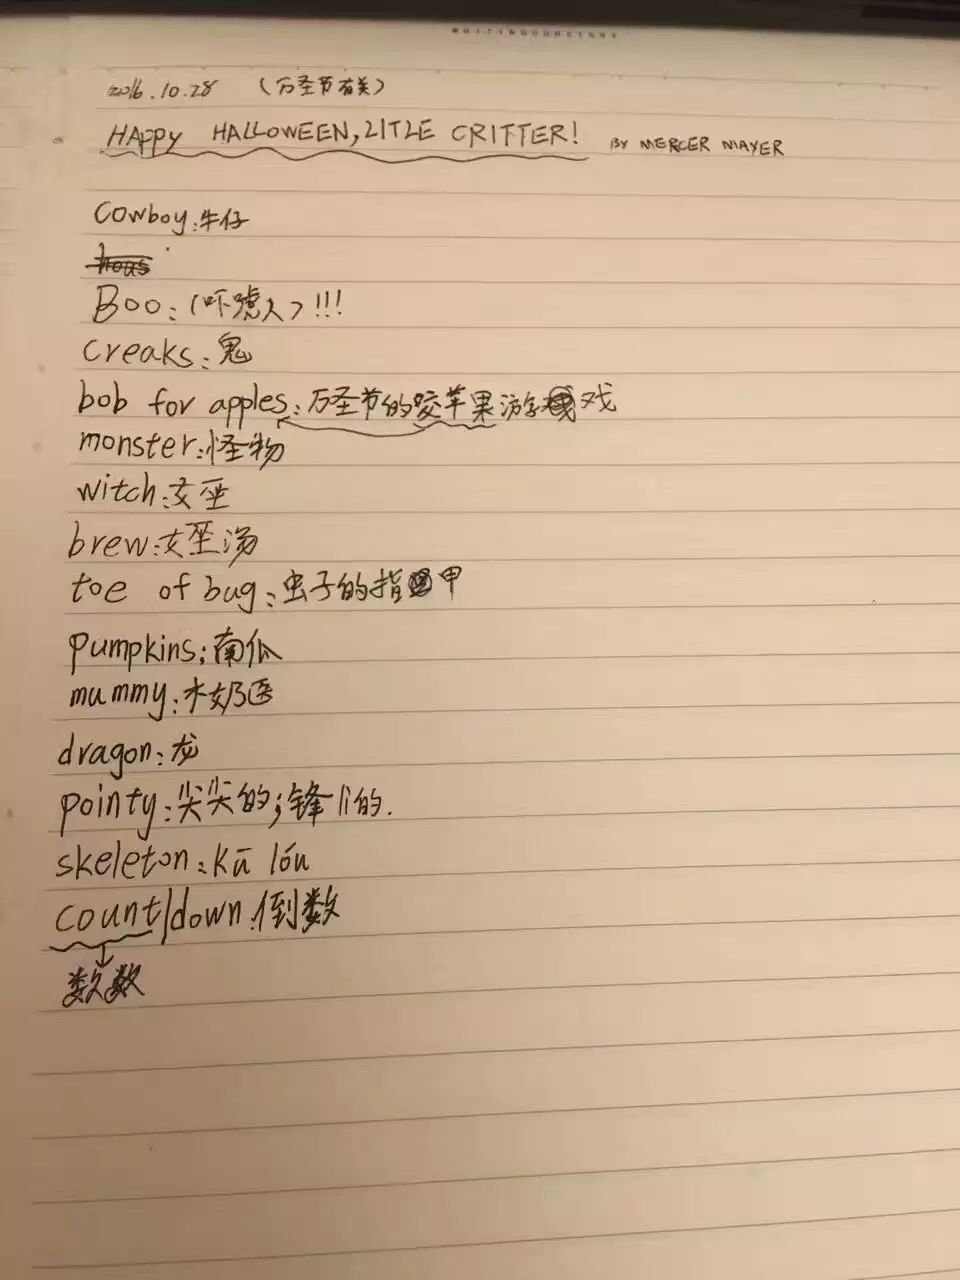 2016.10.28 (万圣节有关)
HAPPY HALLOWEEN, LITLE CRITTER! BY MERCER MAYER
cowboy:牛仔
Boo:(吓唬人)!!!
creaks:鬼
bob for apples:万圣节的咬苹果游戏
monster:怪物
witch:女巫
brew:女巫汤
toe of bug:虫子的指甲
pumpkins:南瓜
mummy:木奶医
dragon:龙
pointy:尖尖的;锋利的.
skeleton:kū lóu
count/down:倒数
数数